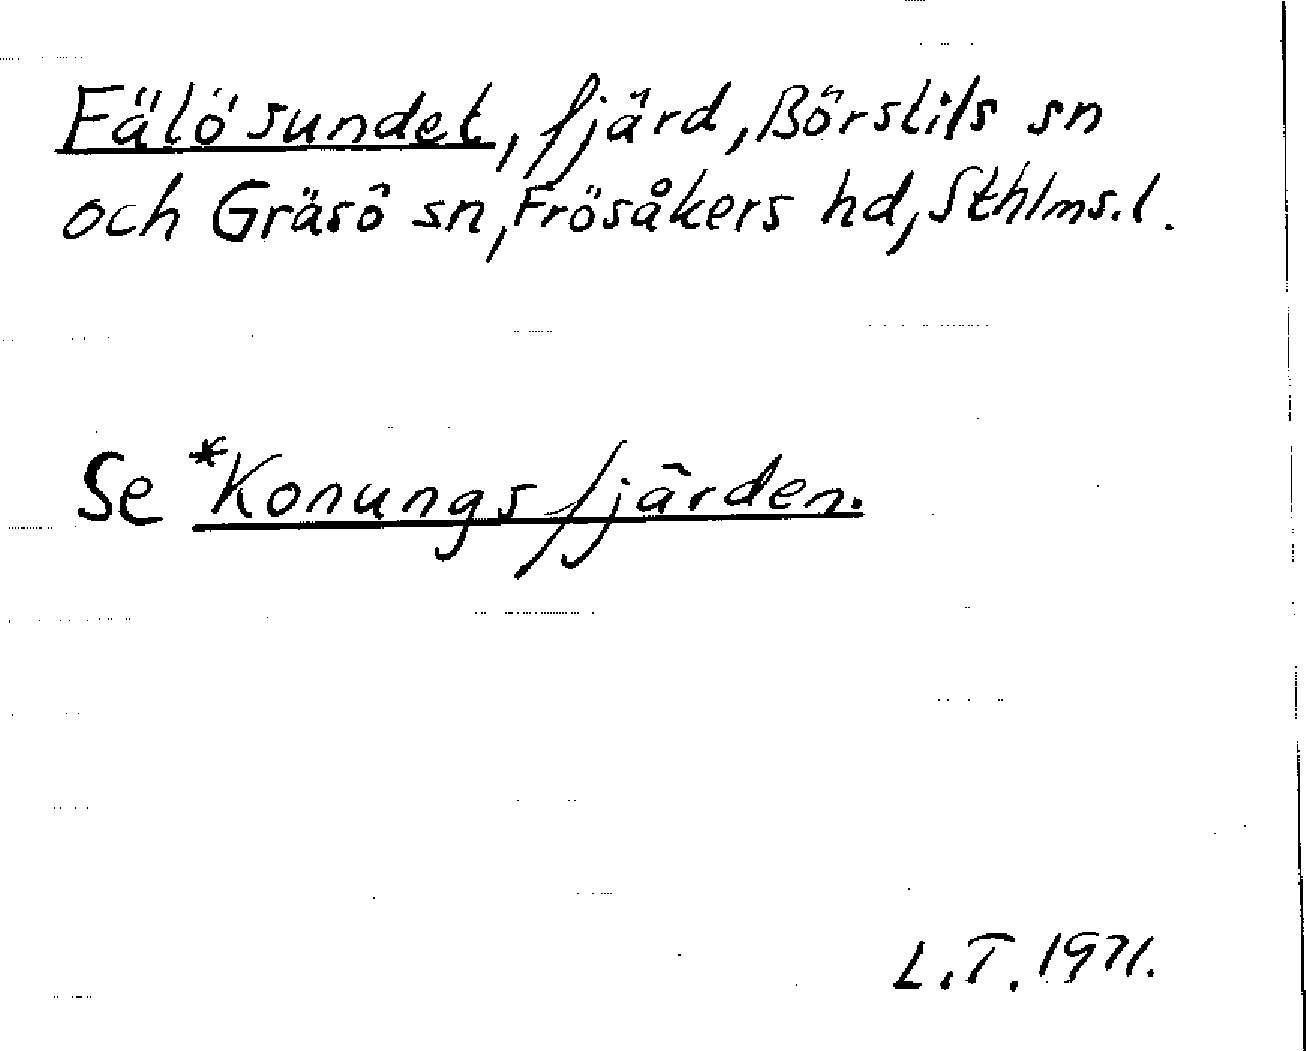 Fälösundet, fjärd, Börstils sn
och Gräsö sn, Frösåkers hd, Sthlms.l.
Se *Konungsfjärden.
L.T. 1971.